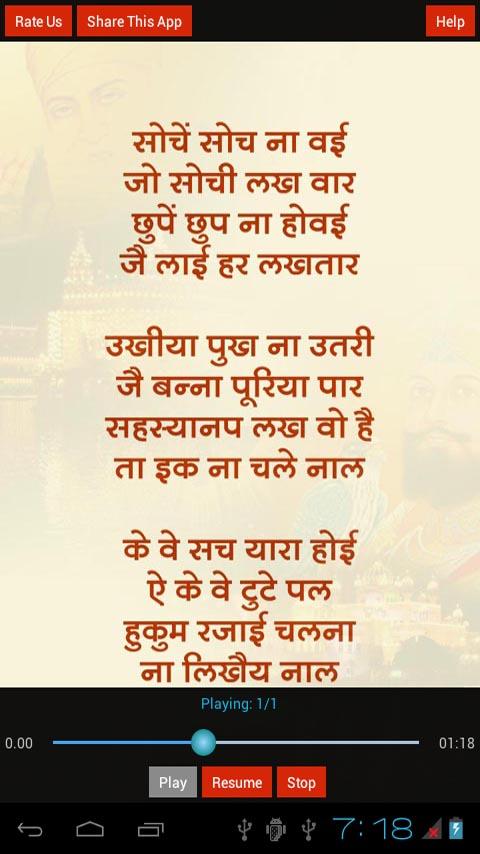 Rate Us Share This App Help
सोचें सोच ना वई
जो सोची लख वार
छुपें छुप ना होवई
जै लाई हर लखतार
उखीया पुख ना उतरी
जै बन्ना पूरिया पार
सहस्यानप लख वो है
ता इक ना चले नाल
के वे सच यारा होई
ऐ के वे टुटे पल
हुकुम रजाई चलना
ना लिखौय नाल
Playing: 1/1
0.00 01:18
Play Resume Stop
7:18